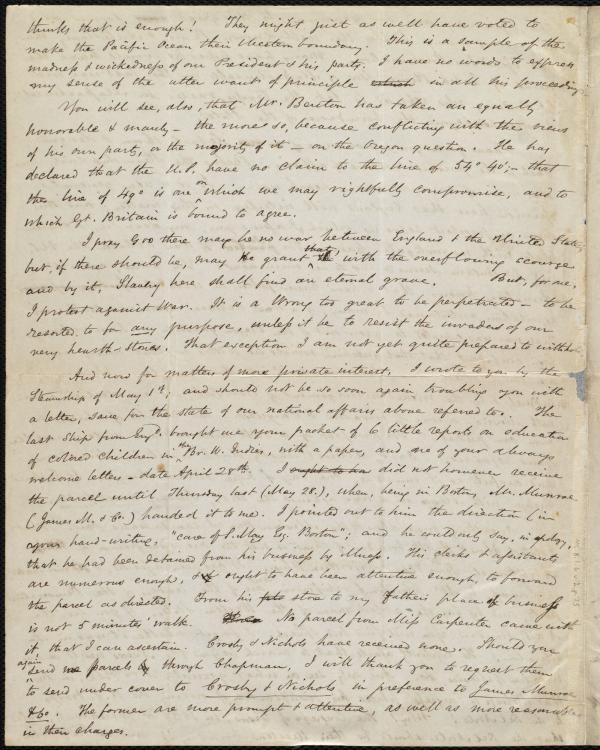 thinks that is enough! They might just as well have voted to
make the Pacific Ocean their Western boundary. This is a sample of the
madness & wickedness of our President & his party. I have no words to express
my sense of the utter want of principle in all his proceedings.
You will see, also, that Mr. Benton has taken an equally
honorable & manly - the more so, because conflicting with the views
of his own party, or the majority of it - on the Oregon question. He has
declared that the U.S. have no claim to the line of 54° 40'; - that
the line of 49° is one on which we may rightfully compromise, and to
which Gt. Britain is bound to agree.
I pray God there may be no war between England & the United States,
but, if there should be, may He grant that with the overflowing scourge
and by it, Slavery here shall find an eternal grave. But, for me,
I protest against War. It is a Wrong too great to be perpetrated - to be
resorted to for any purpose, unless it be to resist the invaders of our
very hearth-stones. That exception I am not yet quite prepared to withhold.
And now for matters of more private interest, I wrote to you by the
Steamship of May 1st; and should not be so soon again troubling you with
a letter, save for the state of our national affairs above referred to. The
last Ship from Engd. brought me your packet of 6 little reports on education
of colored children in the Br. W. Indies, with a paper, and one of your always
welcome letters - date April 28th. I ought to ha did not however receive
the parcel until Thursday last (May 28.), when, being in Boston, Mr. Munroe
(James M. & Co.) handed it to me. I pointed out to him the direction (in
your hand-writing, "care of S. May Esq. Boston"; and he could only say, in apology,
that he had been detained from his business by illness. His clerks & assistants
are numerous enough, & ought to have been attentive enough, to forward
the parcel as directed. From his store to my Father's place of business
is not 5 minutes' walk. No parcel from Miss Carpenter came with
it, that I can ascertain. Crosby & Nichols have received none. Should you
again send me parcels through Chapman, I will thank you to request them
to send under cover to Crosby & Nichols in preference to James Munroe
& Co. The former are more prompt & attentive, as well as more reasonable
in their charges.